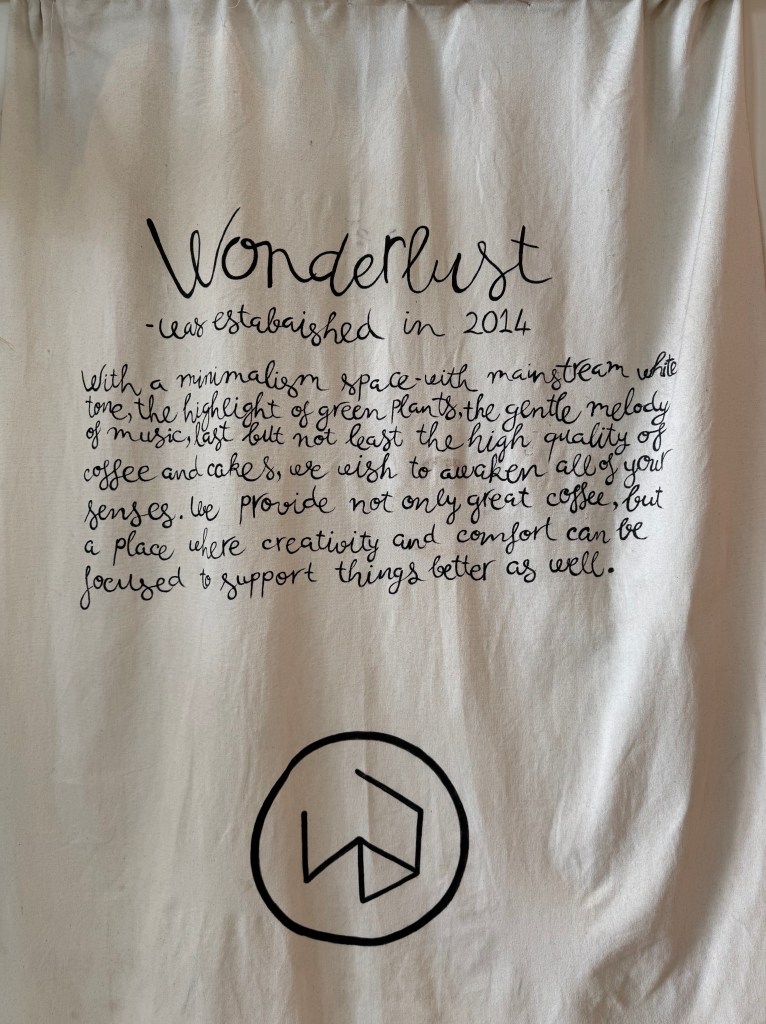 Wonderlust
-was estabaished in 2014
With a minimalism space-with mainstream white
tone, the highlight of green plants, the gentle melody
of music, last but not least the high quality of
coffee and cakes, we wish to awaken all of your
senses. We provide not only great coffee, but
a place where creativity and comfort can be
focused to support things better as well.